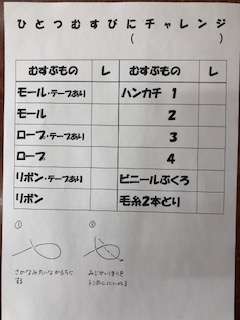 ひとつむすびにチャレンジ
(　　　　)
むすぶもの　レ　むすぶもの　レ
モール・テープあり　ハンカチ　1
モール　2
ロープ・テープあり　3
ロープ　4
リボン・テープあり　ビニールぶくろ
リボン　毛糸2本どり
①　②
さかなみたいなかたちに
する
みじかいほうを
トンネルにいれる